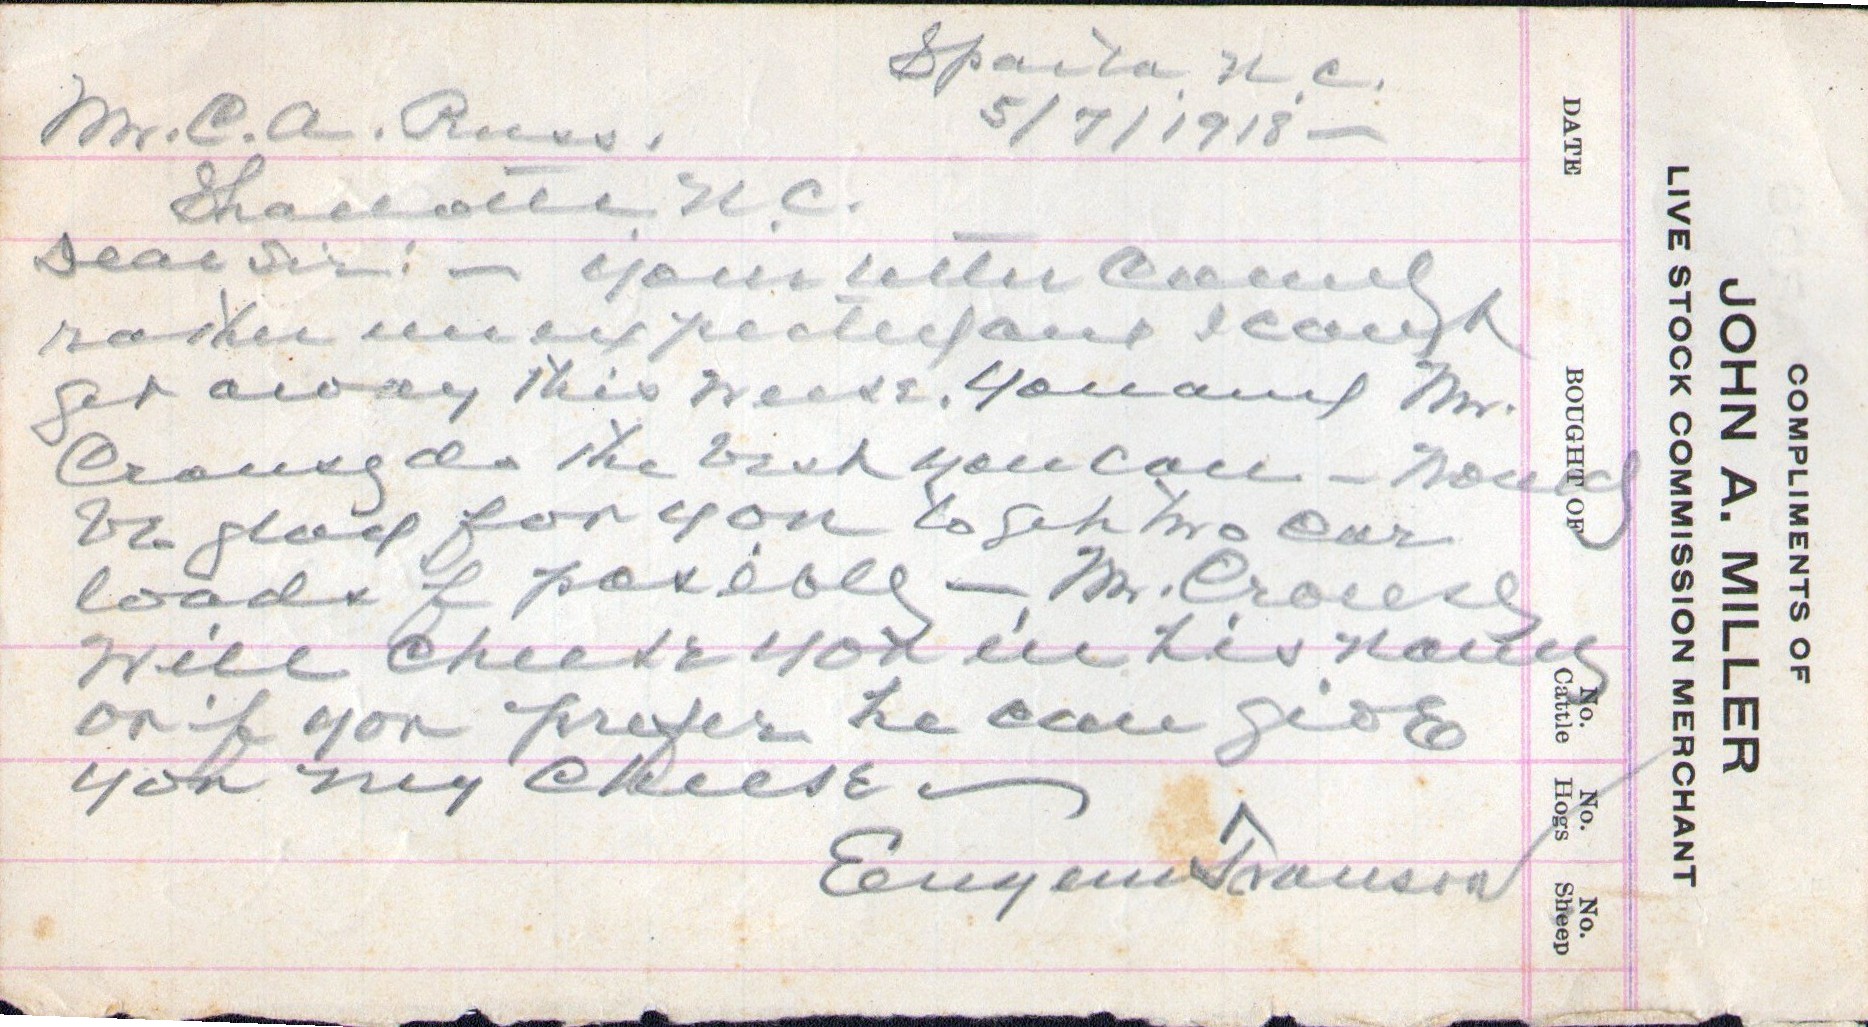 Sparta, N.C.
5/7/1918 —
Mr. C. A. Russ.
Charlotte N.C.
Dear Sir: — Your letter Came
rather unexpected and I can't
get away this week. You and Mr.
Crouse do the best you can — Would
be glad for you to get two car
loads if posible — Mr. Crouse
will check you in his name
or if you prefer he can give
you my check —
Eugene Transou
COMPLIMENTS OF
JOHN A. MILLER
LIVE STOCK COMMISSION MERCHANT
DATE
BOUGHT OF
No. Cattle
No. Hogs
No. Sheep